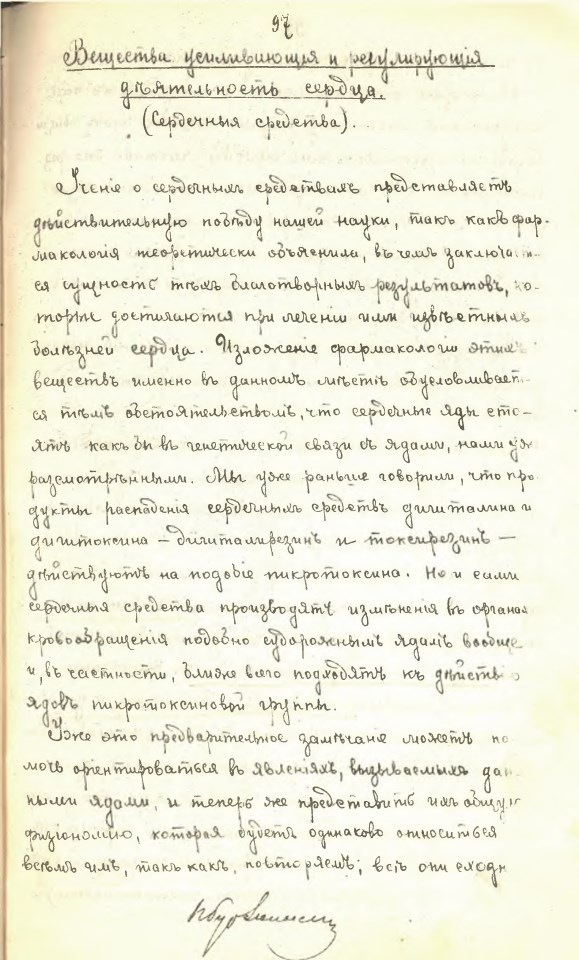 97
Вещества усиливающія и регулирующія
дѣятельность сердца.
(Сердечныя средства).
Ученіе о сердечныхъ средствахъ представляетъ
дѣйствительную побѣду нашей науки, такъ какъ фар-
макологія теоретически объяснила, въ чемъ заключа
ся сущность тѣхъ благотворныхъ результатовъ, ко-
торые достигаются при леченіи ими извѣстныхъ
болѣзней сердца. Изложеніе фармакологіи этихъ
веществъ именно въ данномъ мѣстѣ обусловливает-
ся тѣмъ обстоятельствомъ, что сердечные яды сто-
ятъ какъ бы въ генетической связи съ ядами, нами уж
разсмотрѣнными. Мы уже раньше говорили, что про
дукты распаденія сердечныхъ средствъ дигиталина и
дигитоксина — дигиталирезинъ и токсирезинъ —
дѣйствуютъ на подобіе пикротоксина. Но и сами
сердечныя средства производятъ измѣненія въ органах
кровообращенія подобно судорожнымъ ядамъ вообще
и, въ частности, ближе всего подходятъ къ дѣйств
ядовъ пикротоксиновой группы.
Уже это предварительное замѣчаніе можетъ по
мочь оріентироваться въ явленіяхъ, вызываемыхъ дан
ными ядами, и теперь же представить ихъ общую
физіономію, которая будетъ одинаково относиться
всѣмъ имъ, такъ какъ, повторяемъ, всѣ они сходн